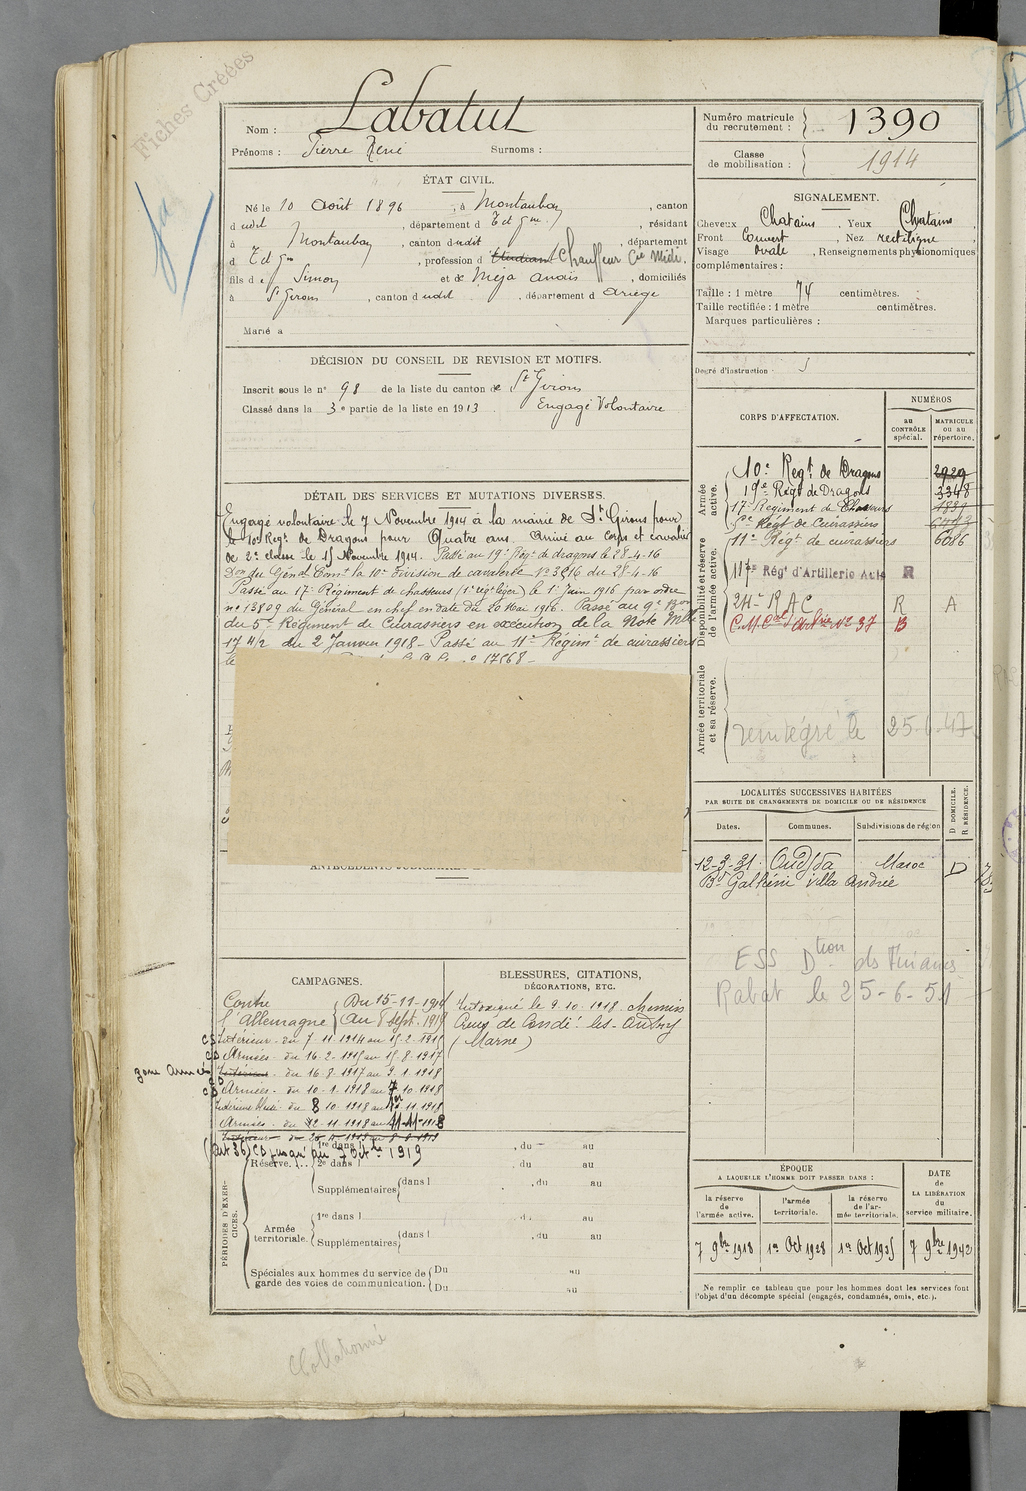 Fiches Créées
Nom : Labatut
Prénoms : Pierre René Surnoms :
Numéro matricule du recrutement : 1390
Classe de mobilisation : 1914
ÉTAT CIVIL.
Né le 10 Août 1896, à Montauban, canton
dudit, département d T et Gne, résidant
à Montauban, canton dudit, département
d T et Gne, profession d Etudiant Chauffeur Cie Midi,
fils de Simon et de Méja Anaïs, domiciliés
à St Girons, canton dudit, département d Ariège
Marié à
SIGNALEMENT.
Cheveux Chatains, Yeux Chatains
Front Couvert, Nez rectiligne
Visage ovale, Renseignements physionomiques
complémentaires :
Taille : 1 mètre 74 centimètres.
Taille rectifiée : 1 mètre centimètres.
Marques particulières :
Degré d'instruction
DÉCISION DU CONSEIL DE REVISION ET MOTIFS.
Inscrit sous le n° 98 de la liste du canton de St Girons
Classé dans la 3e partie de la liste en 1913 Engagé Volontaire
DÉTAIL DES SERVICES ET MUTATIONS DIVERSES.
Engagé volontaire le 7 Novembre 1914 à la mairie de St Girons pour
le 10e Regt de Dragons pour Quatre ans. Arrivé au Corps et cavalier
de 2e classe le 15 Novembre 1914. Passé au 19e Régt de dragons le 28-4-16
Don du Génal Comt la 10e Division de cavalerie No 3516 du 28-4-16
Passé au 17e Régiment de chasseurs (1er régt léger) le 1er Juin 1916 par ordre
n° 13809 du Général en chef en date du 20 Mai 1916. Passé au 9e Bon
du 5e Régiment de Cuirassiers en exécution de la Note Mlle
17 4/2 du 2 Janvier 1918 - Passé au 11e Régimt de cuirassiers
n° 17568 -
CORPS D'AFFECTATION.
NUMÉROS
au CONTRÔLE spécial.
MATRICULE ou au répertoire.
Armée active.
10e Regt de Dragons 2929
19e Régt de Dragons 3348
17e Régiment de Chasseurs 1839
5e Régt de Cuirassiers
11e Régt de cuirassiers 6086
Disponibilité et réserve de l'armée active.
117e Régt d'Artillerie Auto R
24e RAC R A
37 B
Armée territoriale et sa réserve.
reintégré le 25-6-47
LOCALITÉS SUCCESSIVES HABITÉES
PAR SUITE DE CHANGEMENTS DE DOMICILE OU DE RÉSIDENCE
Dates. Communes. Subdivisions de région
D DOMICILE. R RÉSIDENCE.
12-3-31 : Oudjda Maroc D
Bd Galliéni villa Andrée
ESS Dtion ds Finances
Rabat le 25-6-51
CAMPAGNES.
Contre l'Allemagne
Du 15-11-1914
au 8 Sept. 1919
CS Intérieur - du 7-11-1914 au 15-2-1915
CD Armées - du 16-2-1915 au 15-8-1917
zone Armées Intérieur - du 16-8-1917 au 9-1-1918
CD Armées - du 10-1-1918 au 7-10-1918
Intérieur Blessé - du 8 10-1918 au 11-1918
Armées - du 12-11-1918 au 11-11-1918
(Art 36) CD jusqu'au 7 Octbre 1919
BLESSURES, CITATIONS,
DÉCORATIONS, ETC.
Intoxiqué le 9-10-1918 chemin
Creux de Condé-les-Autry
(Marne)
PÉRIODES D'EXERCICES.
Réserve.
1re dans l , du au
2e dans l , du au
Supplémentaires dans l , du au
Armée territoriale.
1re dans l , du au
Supplémentaires dans l , du au
Spéciales aux hommes du service de garde des voies de communication.
Du au
Du au
ÉPOQUE
A LAQUELLE L'HOMME DOIT PASSER DANS :
la réserve de l'armée active.
l'armée territoriale.
la réserve de l'armée territoriale.
DATE de LA LIBÉRATION du service militaire.
7 9bre 1918
1er Oct 1928
1er Oct 1935
7 9bre 1942
Ne remplir ce tableau que pour les hommes dont les services font
l'objet d'un décompte spécial (engagés, condamnés, omis, etc.).
Collationné